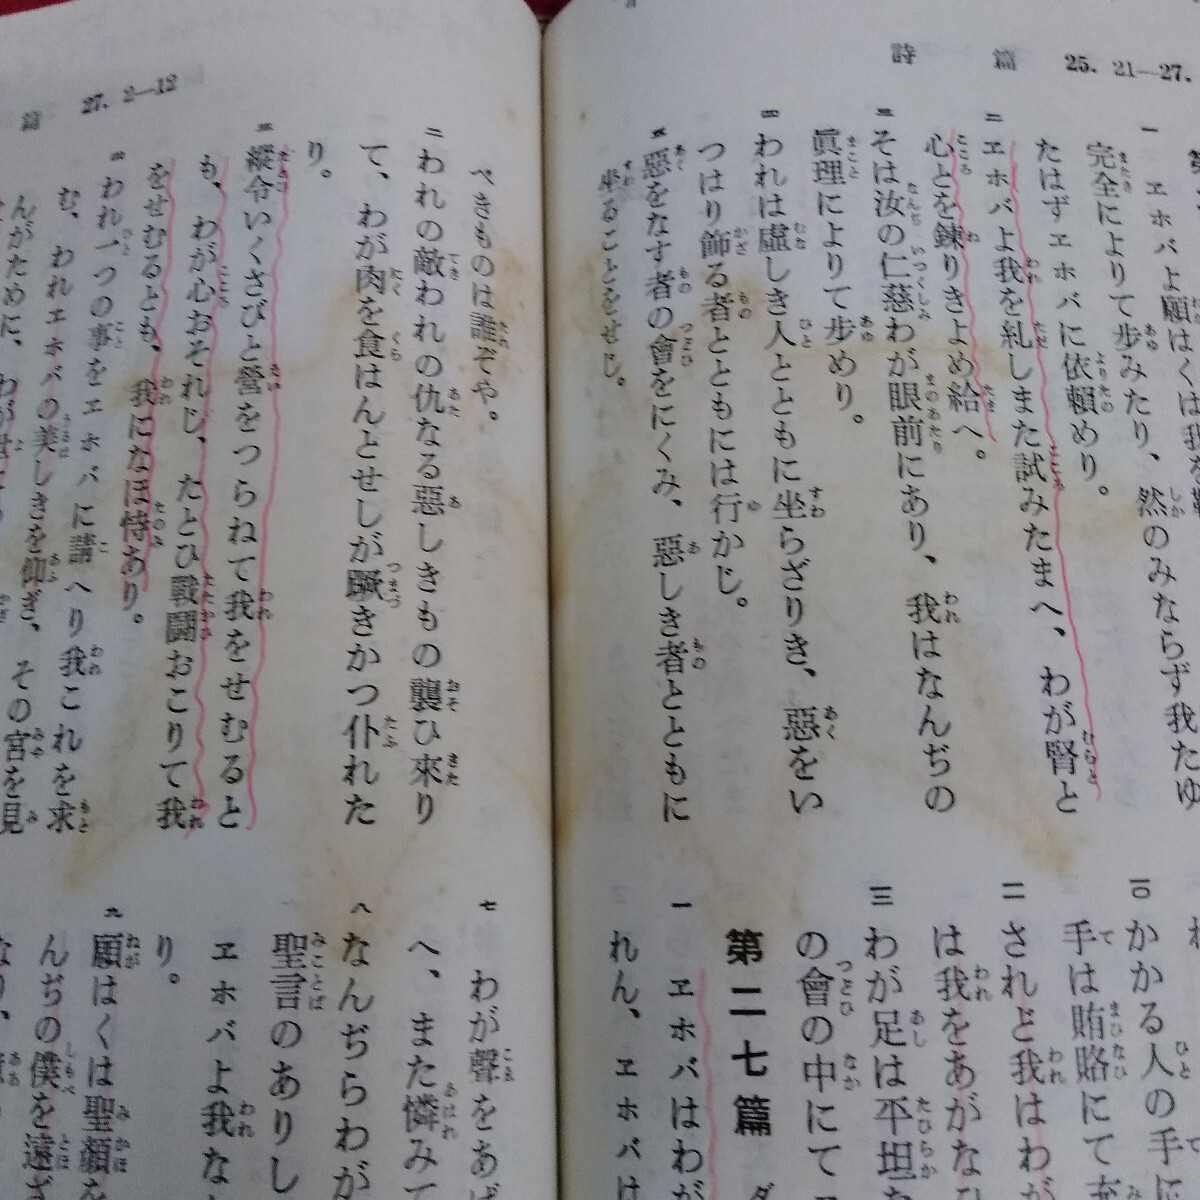 詩 篇 25. 21—27.
一 ヱホバよ願はくは我を
完全によりて歩みたり、然のみならず我たゆ
たはずヱホバに依頼めり。
二 ヱホバよ我を糺しまた試みたまへ、わが腎と
心とを錬りきよめ給へ。
三 そは汝の仁慈わが眼前にあり、我はなんぢの
眞理によりて歩めり。
四 われは虛しき人とともに坐らざりき、惡をい
つはり飾る者とともには行かじ。
五 惡をなす者の會をにくみ、惡しき者とともに
坐ることをせじ。
一〇 かかる人の手に
手は賄賂にて
二 されど我はわが
は我をあがな
三 わが足は平坦な
の會の中にて
第二七篇 ダ
一 ヱホバはわが
れん、ヱホバは
篇 27. 2—12
べきものは誰ぞや。
二 われの敵われの仇なる惡しきもの襲ひ來り
て、わが肉を食はんとせしが蹶きかつ仆れた
り。
三 縱令いくさびと營をつらねて我をせむると
も、わが心おそれじ、たとひ戰鬪おこりて我
をせむるとも、我になほ恃あり。
四 われ一つの事をヱホバに請へり我これを求
む、われヱホバの美しきを仰ぎ、その宮を見
んがために、わが
七 わが聲をあげ
へ、また憐みて
八 なんぢらわが
聖言のありし
ヱホバよ我な
り。
九 願はくは聖顏を
んぢの僕を遠ざ
なり、